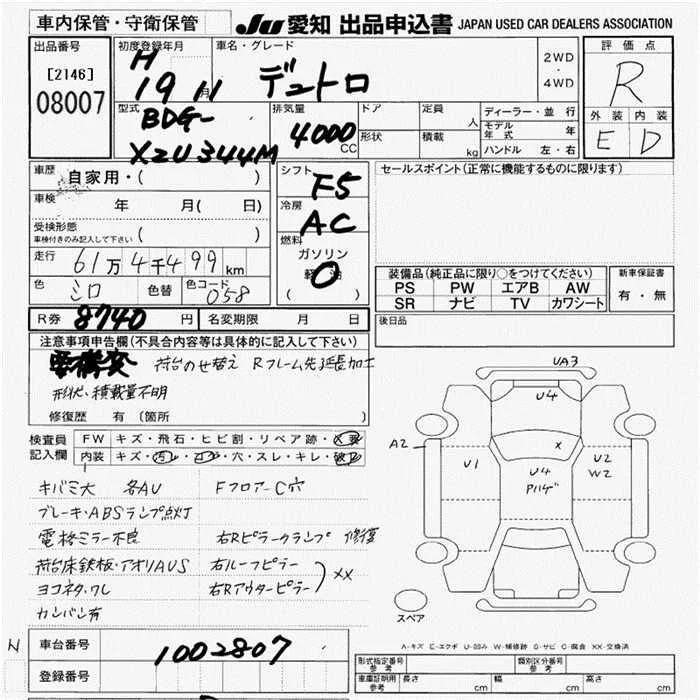 車内保管・守衛保管
JU 愛知 出品申込書 JAPAN USED CAR DEALERS ASSOCIATION
出品番号
[2146]
08007
初度登録年月
H
19 11 月
車名・グレード
デュトロ
2WD
・
4WD
評価点
R
外装 内装
E D
型式
BDG-
XZU344M
排気量
4000
CC
ドア
形状
定員
人
積載
kg
ディーラー・並行
モデル年式 年
ハンドル 左・右
車歴
自家用・( )
車検
年 月( 日)
受検形態
車検付きのみ記入して下さい ( )
走行
61万4千499 km
色
シロ
色替
色コード
058
シフト
F5
冷房
AC
燃料
ガソリン
軽油
( )
セールスポイント(正常に機能するものに限ります)
装備品(純正品に限り○をつけてください)
PS PW エアB AW
SR ナビ TV カワシート
新車保証書
有・無
R券 8740 円
名変期限 月 日
後日品
注意事項申告欄(不具合内容等は具体的に記入して下さい)
荷台のせ替え Rフレーム先延長加工
形状・積載量不明
修復歴 有 (箇所 )
検査員
記入欄
FW キズ・飛石・ヒビ割・リペア跡・X要
内装 キズ・汚レ・コゲ・穴・スレ・キレ・
キバミ大 各AU FフロアーC穴
ブレーキ・ABSランプ点灯
電格ミラー不良 右Rピラークランプ 修復
荷台床鉄板・アオリAUS 右ルーフピラー
ヨコネタ・ワレ 右Rアウターピラー XX
カンバン有
UA3
U4
A2
X
U1
U4
Pハゲ
U2
W2
スペア
A-キズ E-エクボ U-凹み W-補修跡 S-サビ C-腐食 XX-交換済
N
車台番号
1002807
登録番号
形式指定番号
参考
類別区分番号
参考
車庫証明用
参考
長さ cm 幅 cm 高さ cm